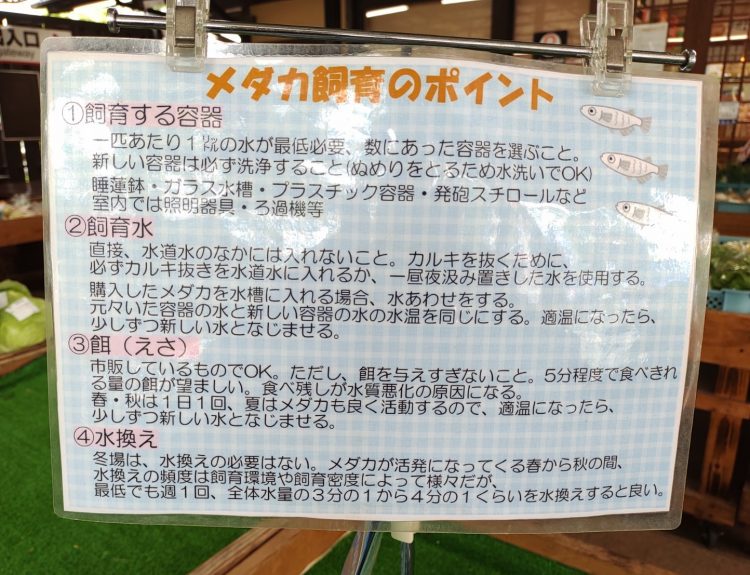 入口
メダカ飼育のポイント
①飼育する容器
一匹あたり1㍑の水が最低必要、数にあった容器を選ぶこと。
新しい容器は必ず洗浄すること(ぬめりをとるため水洗いでOK)
睡蓮鉢・ガラス水槽・プラスチック容器・発砲スチロールなど
室内では照明器具・ろ過機等
②飼育水
直接、水道水のなかには入れないこと。カルキを抜くために、
必ずカルキ抜きを水道水に入れるか、一昼夜汲み置きした水を使用する。
購入したメダカを水槽に入れる場合、水あわせをする。
元々いた容器の水と新しい容器の水の水温を同じにする。適温になったら、
少しずつ新しい水となじませる。
③餌（えさ）
市販しているものでOK。ただし、餌を与えすぎないこと。5分程度で食べきれ
る量の餌が望ましい。食べ残しが水質悪化の原因になる。
春・秋は1日1回、夏はメダカも良く活動するので、適温になったら、
少しずつ新しい水となじませる。
④水換え
冬場は、水換えの必要はない。メダカが活発になってくる春から秋の間、
水換えの頻度は飼育環境や飼育密度によって様々だが、
最低でも週1回、全体水量の3分の1から4分の1くらいを水換えすると良い。